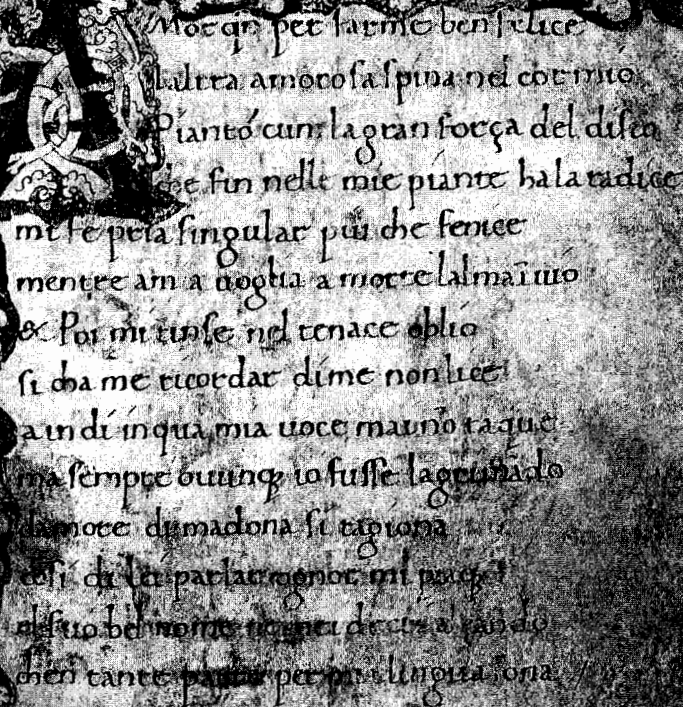 AMor qñ per farme ben felice
laltera amorosa spina nel cor mio
Pianto cum la gran força del disio
che fin nelle mie piante ha la radice
mi fe pria singular piu che fenice
mentre am a uoglia a morte lalma inuio
& Poi mi tinse nel tenace oblio
si cha me ricordar di me non lice
a indi in qua mia uoce mai nõ taque
ma sempre ouunq̃ io fusse lagrimãdo
damore di madona si ragiona
cosi di lei parlar ognor mi piaq̃
el suo bel nome
chen tante per mia lingua sona